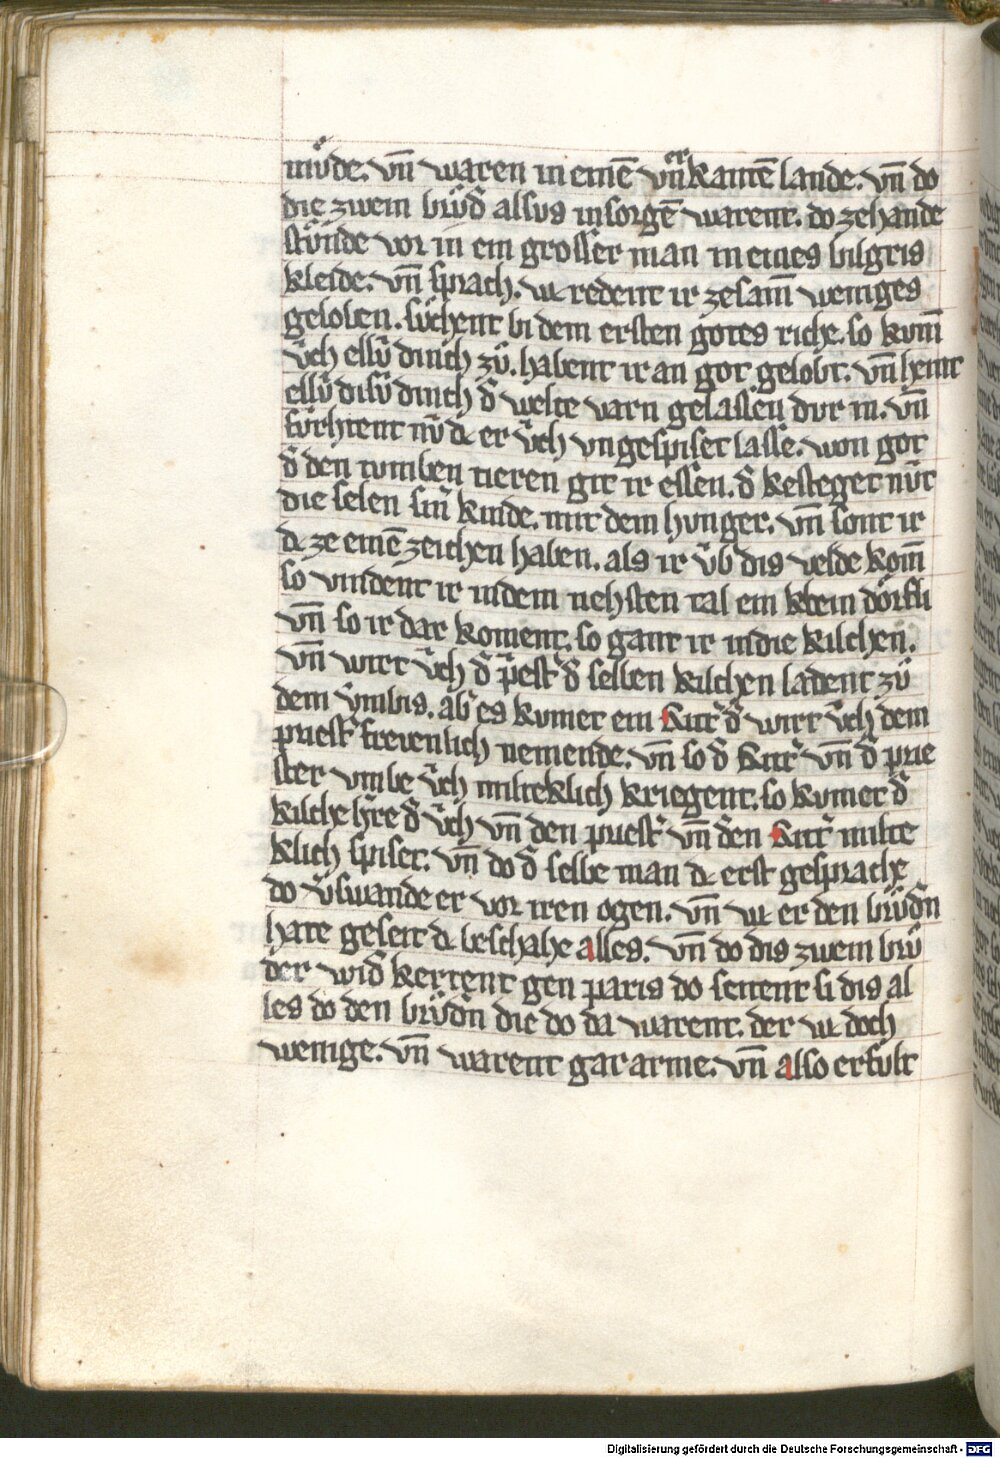 mvͤde. vn̄ waren in einē vn̄erkantē lande. vn̄ do
die zwein brvͦd̾ alsvs in sorgē warent. do zehande
stvͦnde vor in ein grosser man in eines bilgris
kleide. vn̄ sprach. w̾ redent ir zesam̄ weniges
geloben. svͦchent bi dem ersten gotes riche. so kvm̄
v̾ch ellv̾ dinch zvͦ. habent ir an got gelobt. vn̄ hent
ellv̾ disv̾ dinch d̾ welte varn gelassen dvr in. vn̄
fv̾rhtent nv̾ dc er v̾ch vngespiset lasse. won got
d̾ den tvmben tieren git ir essen. d̾ kesteget nv̾t
die selen sin̄ kinde. mit dem hvnger. vn̄ sont ir
dc ze einē zeichen haben. als ir v̾b dis velde kom̄
so vindent ir in dem nehsten tal ein klein dörfli
vn̄ so ir dar koment. so gant ir in die kilchen.
vn̄ wirt v̾ch d̾ p̄est̾ d̾ selben kilchen ladent zvͦ
dem vmbis. ab̾ es kvmet ein Rittˀ d̾ wirt v̾ch dem
priest̾ frevenlich nemende. vn̄ so d̾ Rittˀ vn̄ d̾ prie
ster vmbe v̾ch milteklich kriegent. so kvmet d̾
kilche h̾re d̾ v̾ch vn̄ den priest̾ vn̄ den Rittˀ milte
klich spiset. vn̄ do d̾ selbe man dc erst gesprache
do v̾swande er vor iren ogen. vn̄ w̾ er den brvͦd̾n
hate geseit dc beschahe alles. vn̄ do dis zwein brvͦ
der wid̾ kertent gen paris do seitent si dis al
les do den brvͦd̾n die do da warent. der w̾ doch
wenige. vn̄ warent gar arme. vn̄ also erfvlt
Digitalisierung gefördert durch die Deutsche Forschungsgemeinschaft - DFG